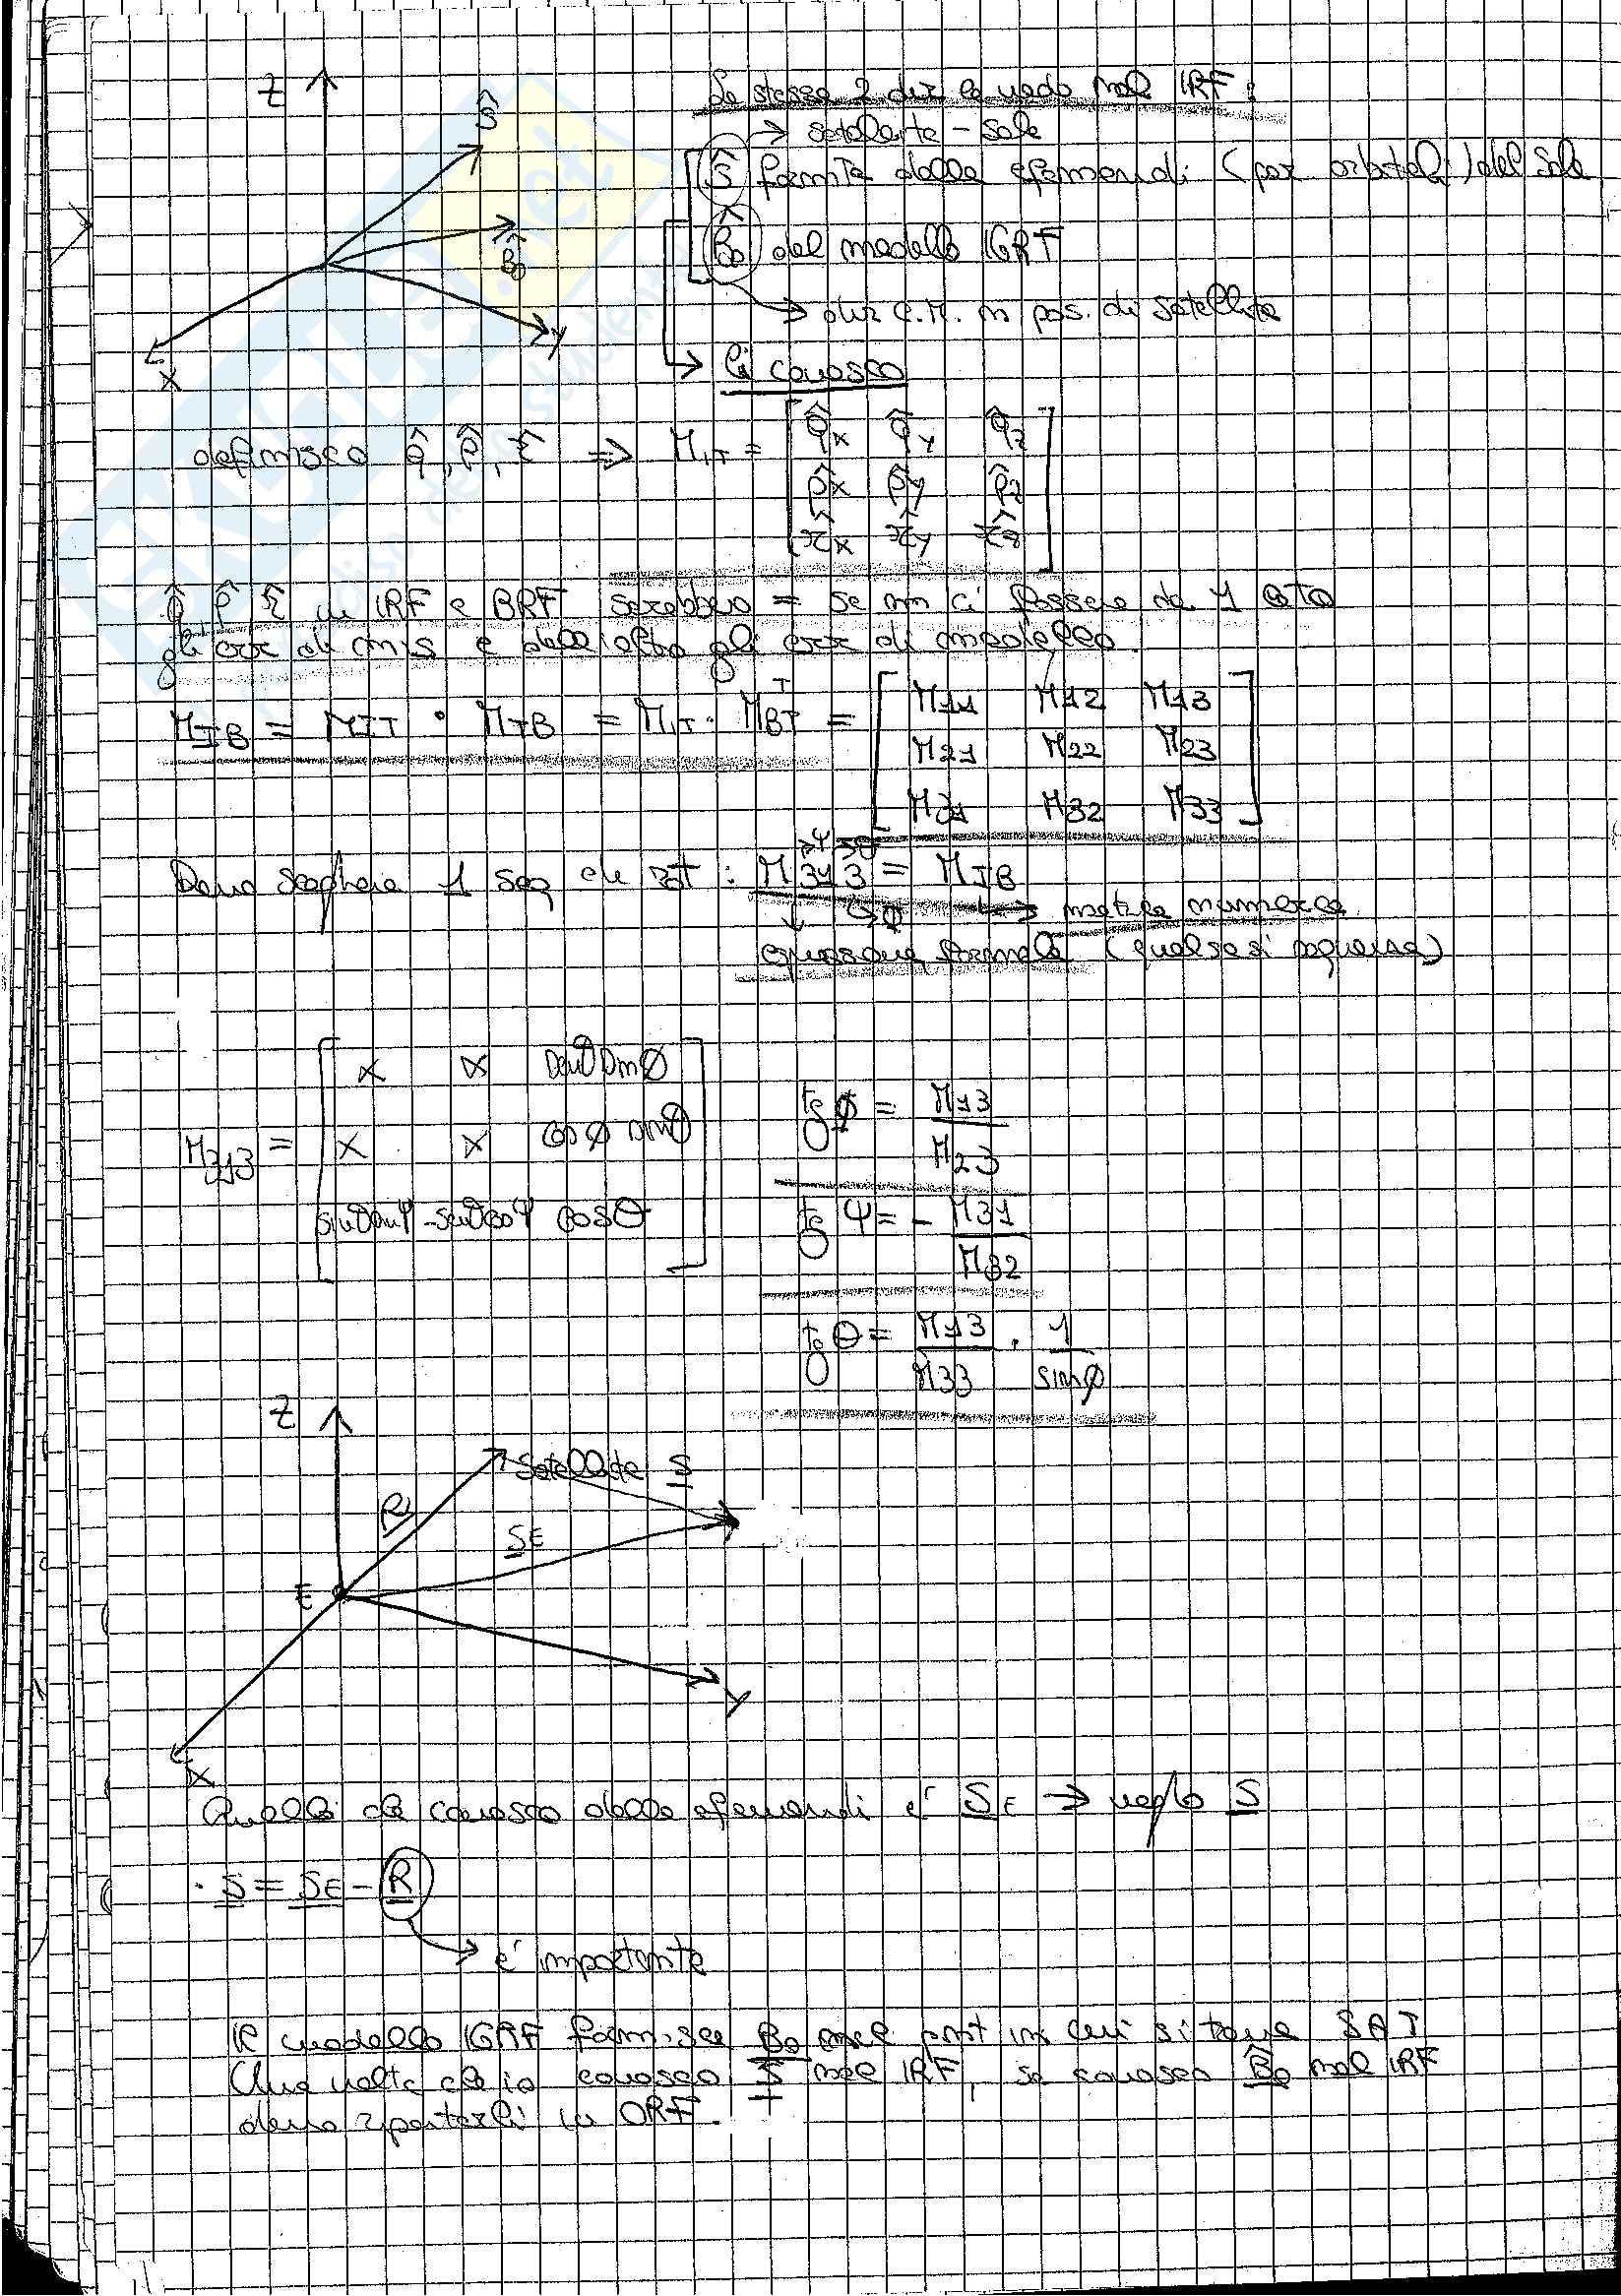 Z
Ŝ
B̂0
Y
X
Le stesse 2 dir le vedo nel IRF:
→ satellite - Sole
Ŝ fornita dalle efemeridi (par orbitali) del Sole
B̂0 dal modello IGRF
→ dir C.M. in pos. di satellite
→ li conosco
definisco q̂, p̂, r̂ ⇒ MIT = [q̂x q̂y q̂z
p̂x p̂y p̂z
r̂x r̂y r̂z]
q̂, p̂, r̂ in IRF e BRF sarebbero = se non ci fossero da 1 lato
gli err di mis e dall'altro gli err di modello.
MIB = MIT · MTB = MIT · MBT^T = [M11 M12 M13
M21 M22 M23
M31 M32 M33]
→ψ →θ
Devo scegliere 1 seq di rot: M313 = MIB
↓ ↳φ ↳ matrice numerica
espressione formale (qualsiasi sequenza)
M313 = [x x senθ sinφ
x x cosφ sinθ
sinθ sinψ -senθ cosψ cosθ]
tg φ = M13 / M23
tg ψ = - M31 / M32
tg θ = M13 / M33 · 1 / sinφ
Z
Satellite S
R
SE
E
Y
X
Quello che conosco dalle efemeridi è SE → voglio S
· S = SE - R
→ è importante
Il modello IGRF fornisce B0 nel pnt in cui si trova SAT
Una volta che io conosco S nel IRF, se conosco B̂0 nel IRF
devo riportarli in ORF.